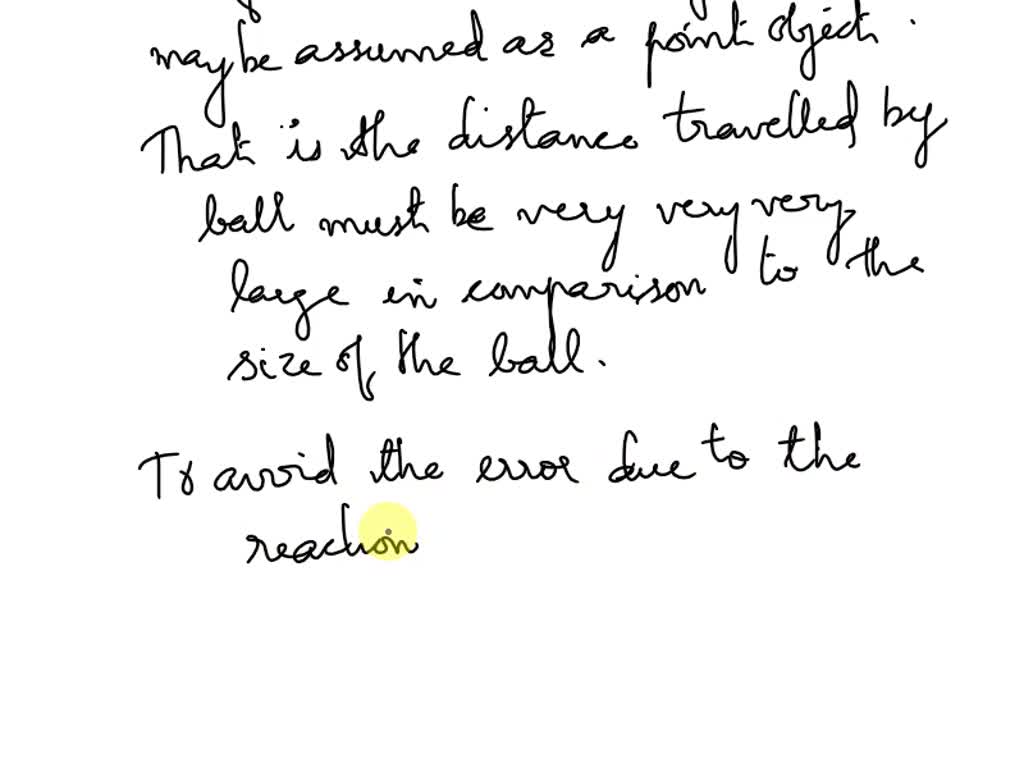 may be assumed as a point object.
That is the distance travelled by
ball must be very very very
large in comparison to the
size of the ball.
To avoid the error due to the
reaction